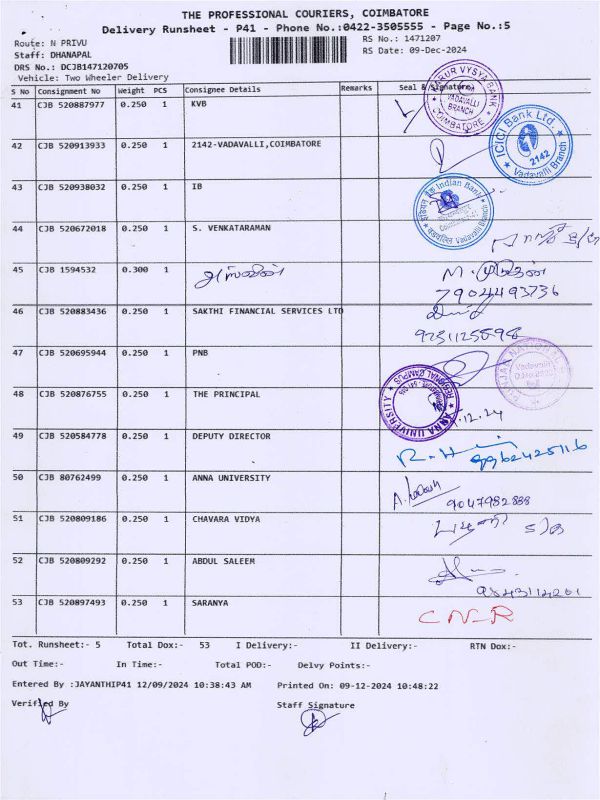 THE PROFESSIONAL COURIERS, COIMBATORE
Delivery Runsheet - P41 - Phone No.:0422-3505555 - Page No.:5
Route: N PRIVU RS No.: 1471207
Staff: DHANAPAL RS Date: 09-Dec-2024
DRS No.: DCJB147120705
Vehicle: Two Wheeler Delivery
S No Consignment No Weight PCS Consignee Details Remarks Seal & Signature
41 CJB 520887977 0.250 1 KVB
KARUR VYSYA BANK
VADAVALLI
BRANCH
COIMBATORE
42 CJB 520913933 0.250 1 2142-VADAVALLI,COIMBATORE
ICICI Bank Ltd.
2142
Vadavalli Branch
43 CJB 520938032 0.250 1 IB
इंडियन बैंक Indian Bank
Vadavalli Branch
44 CJB 520672018 0.250 1 S. VENKATARAMAN
45 CJB 1594532 0.300 1 அஸ்வின்
7904493736
46 CJB 520883436 0.250 1 SAKTHI FINANCIAL SERVICES LTD
47 CJB 520695944 0.250 1 PNB
PUNJAB NATIONAL
48 CJB 520876755 0.250 1 THE PRINCIPAL
ANNA UNIVERSITY
REGIONAL CAMPUS
.12.24
49 CJB 520584778 0.250 1 DEPUTY DIRECTOR
9962425116
50 CJB 80762499 0.250 1 ANNA UNIVERSITY
9047982888
51 CJB 520809186 0.250 1 CHAVARA VIDYA
52 CJB 520809292 0.250 1 ABDUL SALEEM
9843114201
53 CJB 520897493 0.250 1 SARANYA
CNR
Tot. Runsheet:- 5 Total Dox:- 53 I Delivery:- II Delivery:- RTN Dox:-
Out Time:- In Time:- Total POD:- Delvy Points:-
Entered By :JAYANTHIP41 12/09/2024 10:38:43 AM Printed On: 09-12-2024 10:48:22
Verified By Staff Signature